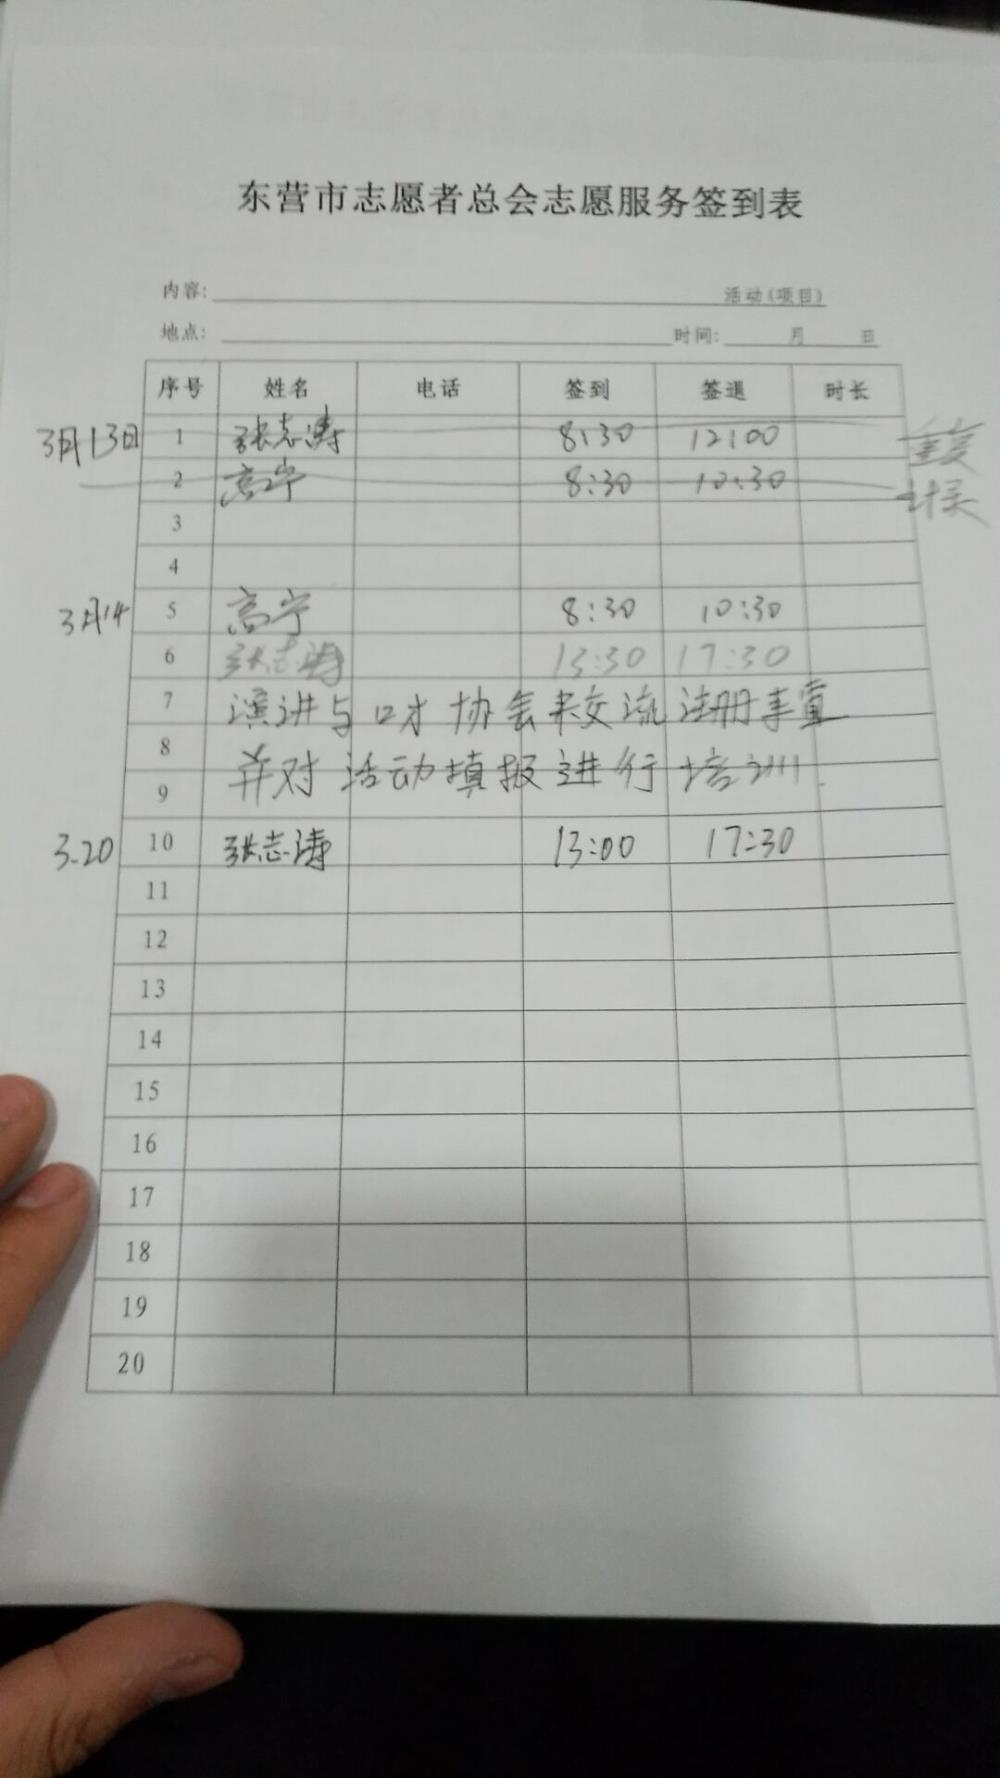 东营市志愿者总会志愿服务签到表
内容: 活动(项目)
地点: 时间: 月 日
序号 姓名 电话 签到 签退 时长
3月13日 1 张志涛 8:30 12:00 重复
2 高宁 8:30 10:30 计录
3
4
3月14 5 高宁 8:30 10:30
6 张志涛 13:30 17:30
7 演讲与口才协会来交流注册事宜
8 并对活动填报进行培训.
9
3.20 10 张志涛 13:00 17:30
11
12
13
14
15
16
17
18
19
20